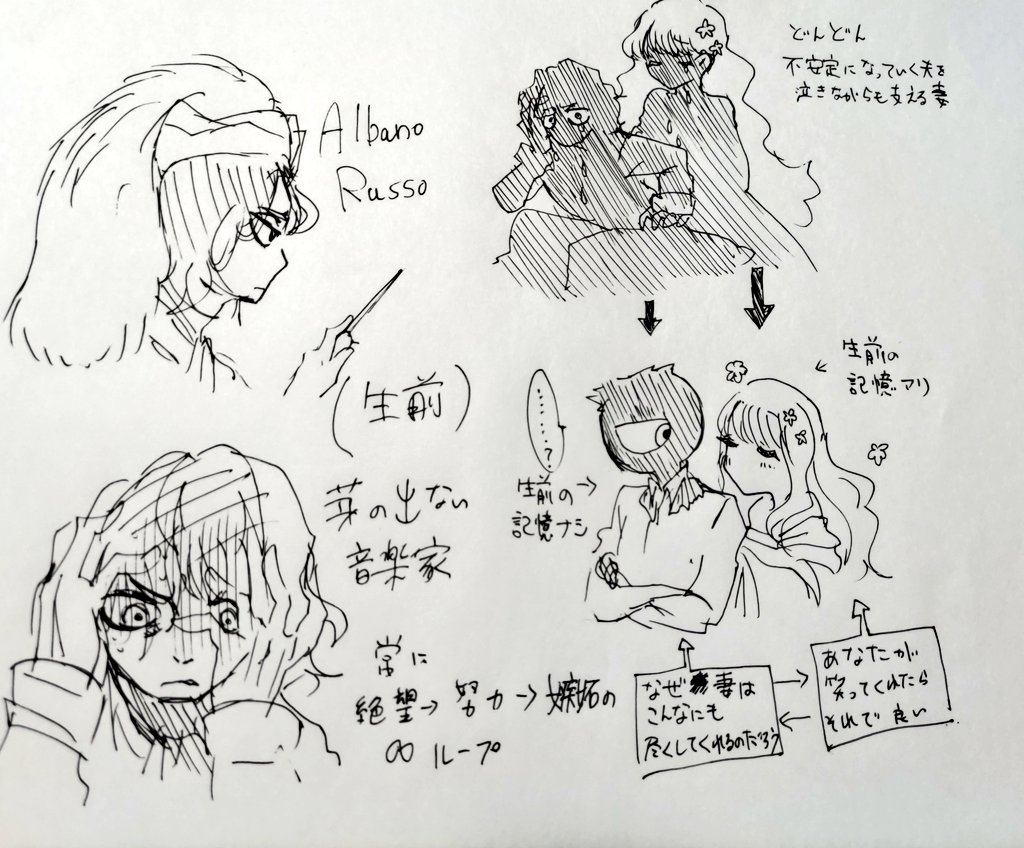 Albano
Russo
(生前)
芽の出ない
音楽家
常に
絶望→努力→嫉妬の
∞ループ
どんどん
不安定になっていく夫を
泣きながらも支える妻
生前の
記憶アリ
……?
生前の→
記憶ナシ
なぜ妻は
こんなにも
尽くしてくれるのだろう
あなたが
笑ってくれたら
それで良い